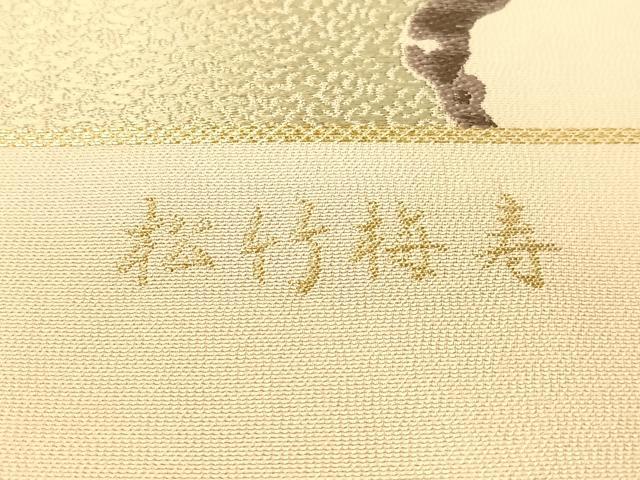 松竹梅寿